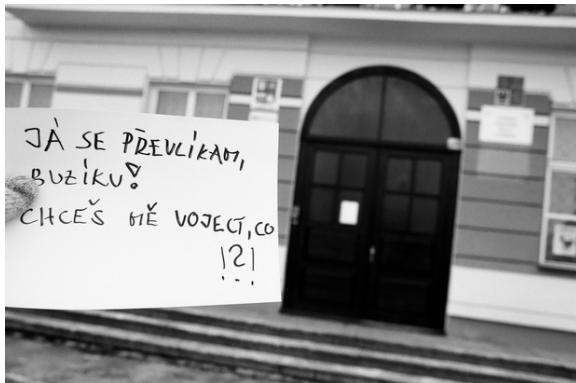 JÁ SE PŘEVLÍKAM,
BUZÍKU!
CHCEŠ MĚ VOJECT, CO
!?!